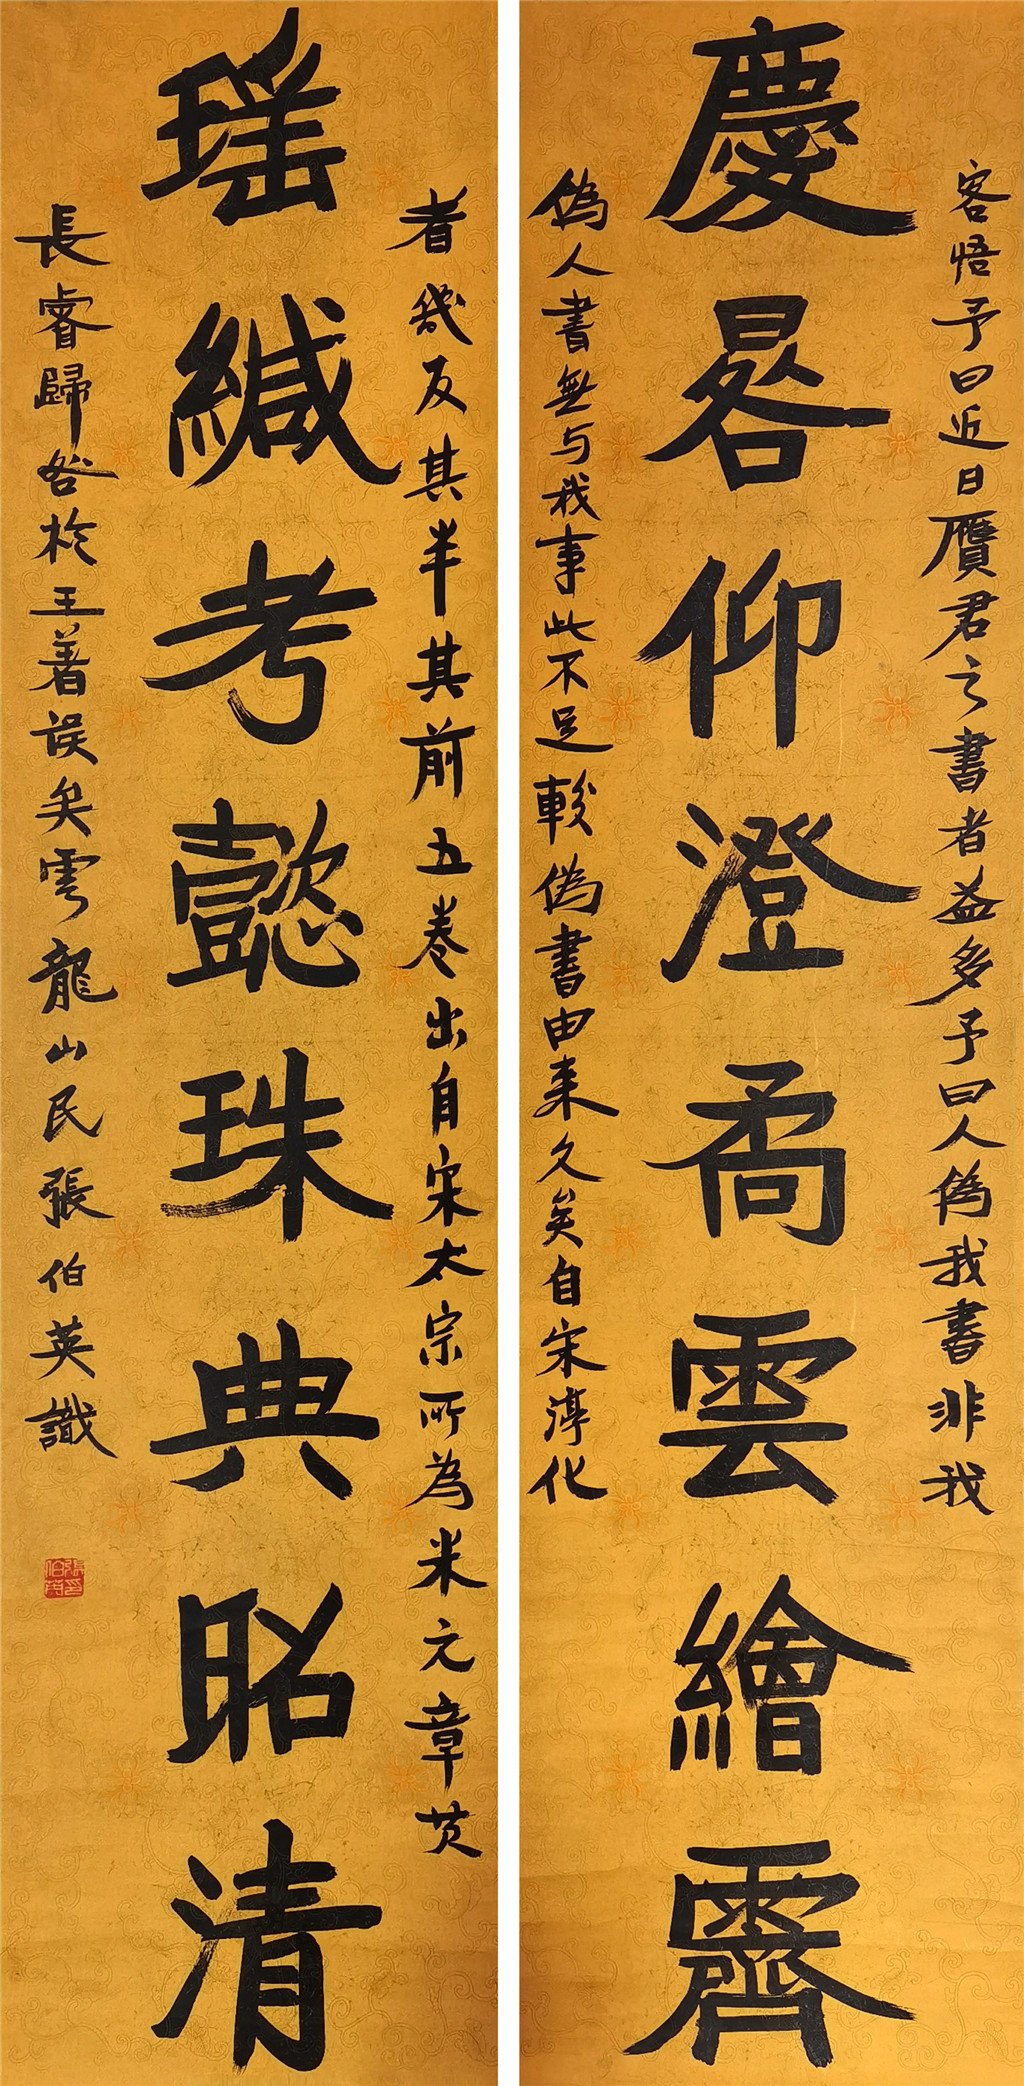 客悟予曰近日贋君之書者益多予曰人偽我書非我
慶晷仰澄矞雲繪霽
偽人書無与我事此不足較偽書由来久矣自宋淳化
者幾反其半其前五卷出自宋太宗所為米元章黄
瑤緘考懿珠典昭清
長睿歸咎於王著误矣雲龍山民張伯英識
張伯英印